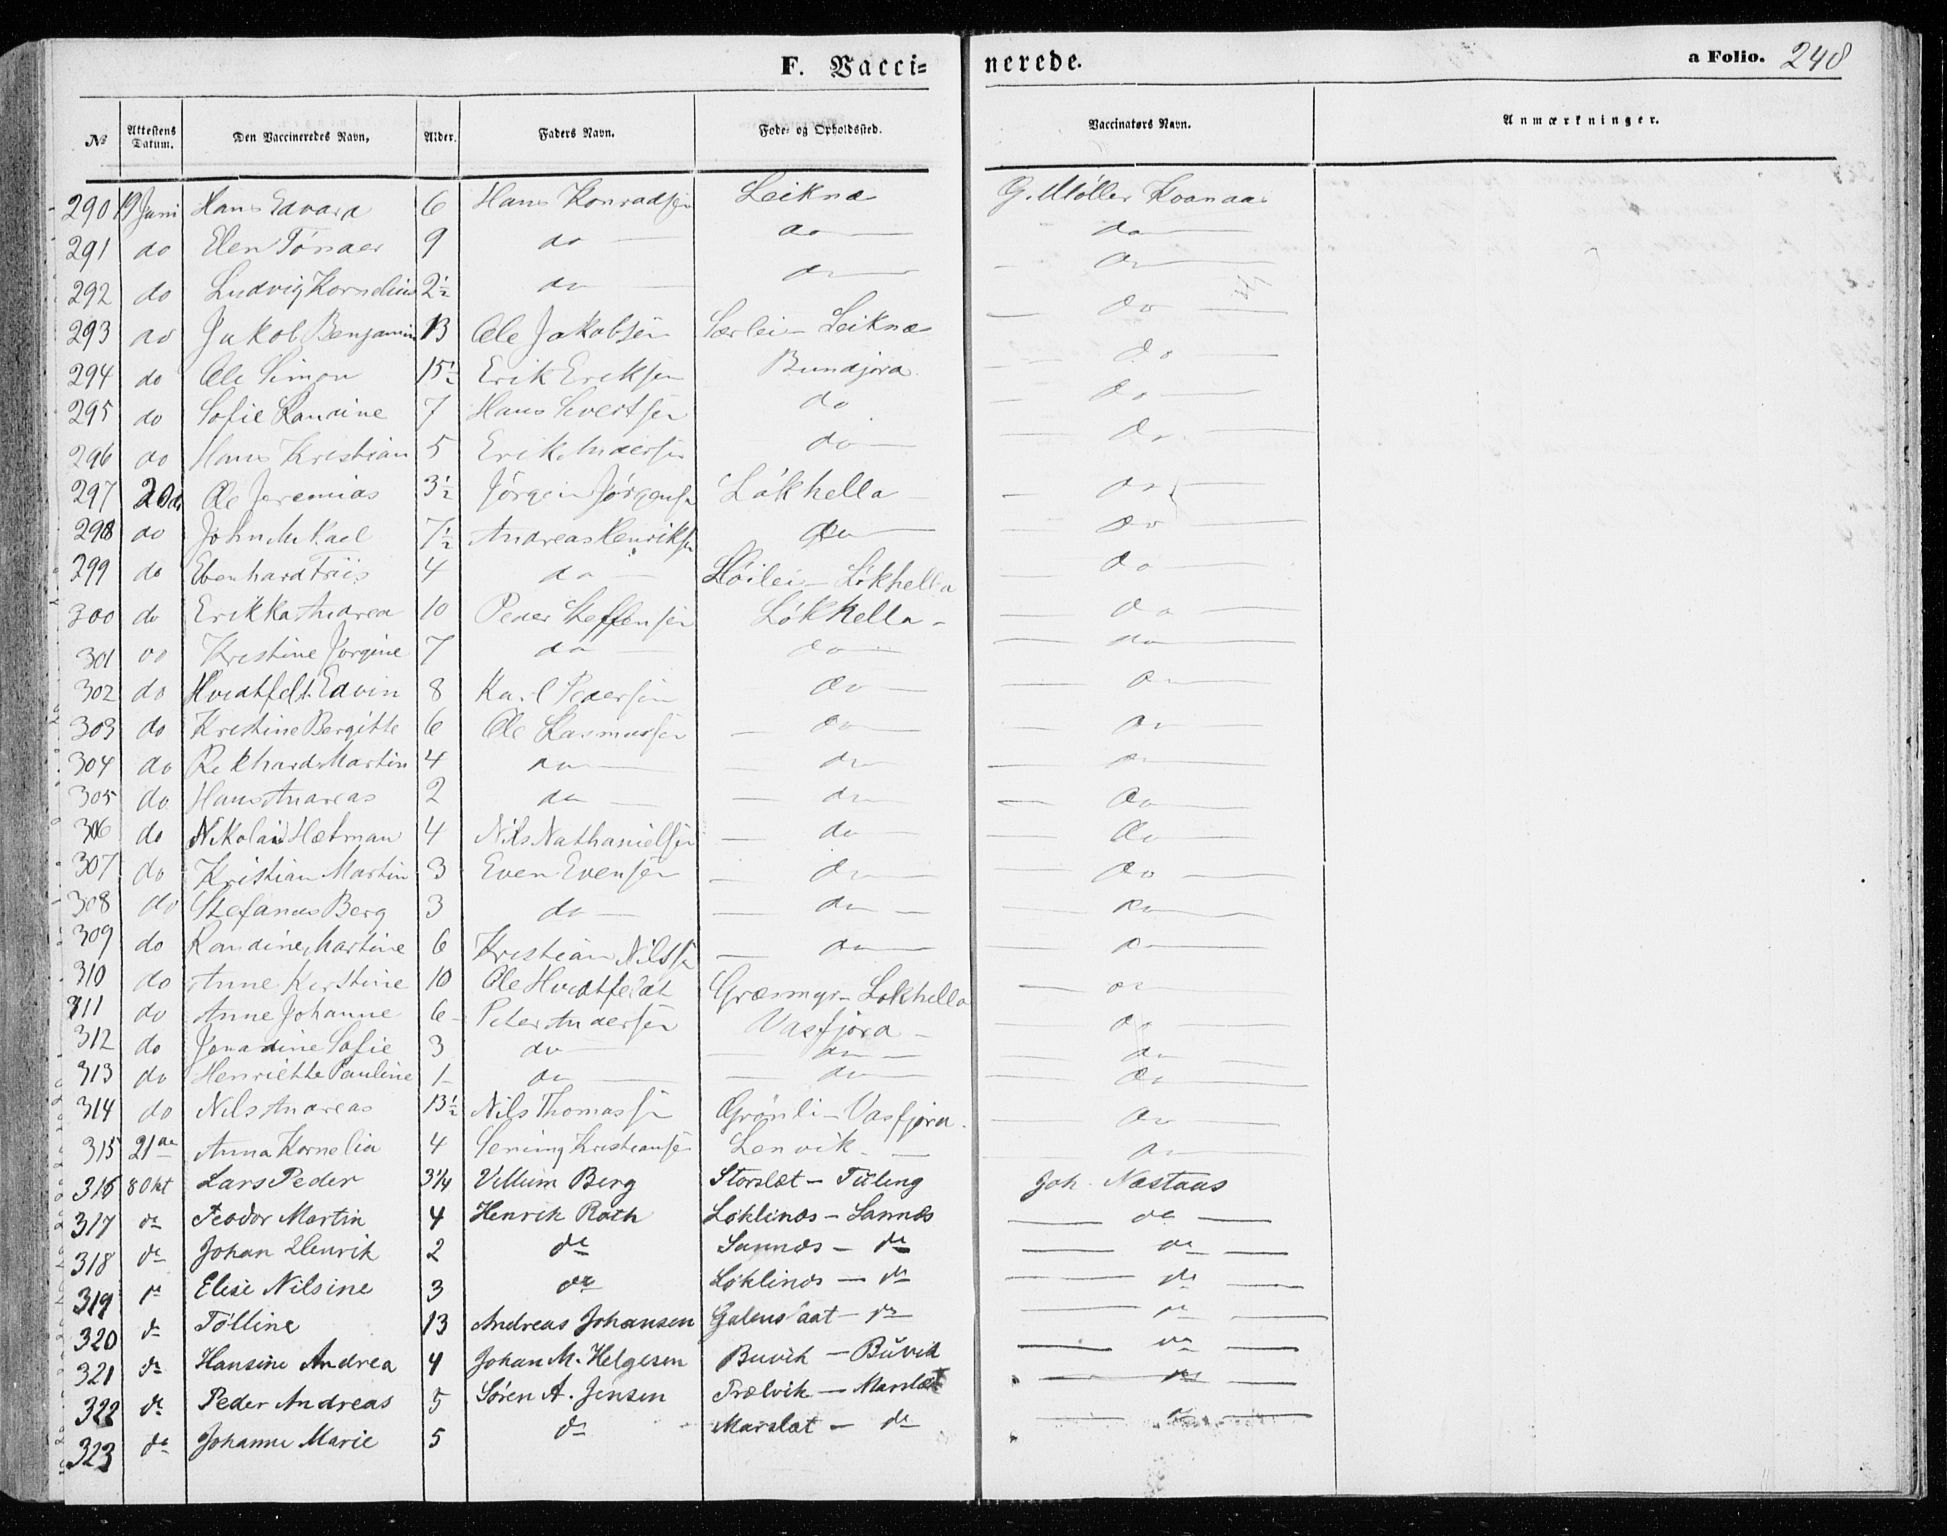 F. Vaccinerede. a Folio. 248
№ Attestens Datum. Den Vaccineredes Navn, Alder. Faders Navn. Føde- og Opholdssted. Vaccinatørs Navn. Anmærkninger.
290 19 Juni Hans Edvard 6 Hans Konradsen Leiknæ G. Møller
291 do Elen 9 do do do
292 do Ludvig Kornelius 2½ do do do
293 do Jakob Benjamin 13 Ole Jakobsen Leiknæ do
294 do Ole Simon 15½ Erik Eriksen Bundjora do
295 do Sofie Randine 7 Hans Sivertsen do do
296 do Hans Kristian 5 Erik Andersen do do
297 20 do Ole Jeremias 3½ Jörgen Jörgensen Lökhella do
298 do John Mikael 7½ Andreas Henriksen do do
299 do Ebenhard Friis 4 do Höilei - Lökhella do
300 do Erikka Andrea 10 Peder Steffensen Lökhella - do
301 do Kristine Jörgine 7 do do do
302 do Hvidtfelt Edvin 8 Karl Pedersen do do
303 do Kristine Bergitte 6 Ole Rasmussen do do
304 do Rikhard Martin 4 do do do
305 do Hans Andreas 2 do do do
306 do Nikolai Hetman 4 Nils Nathanielsen do do
307 do Kristian Martin 3 Even Evensen do do
308 do Stefanus Berg 3 do do do
309 do Randine Martine 6 Kristian Nilssen do do
310 do Anne Kirstine 10 Ole Hvidtfeldt Græsmyr - Lökhella do
311 do Anne Johanne 6 - Peter Andersen Vasfjora - do
312 do Jonadine Sofie 3 do do do
313 do Henriette Pauline 1 - do do do
314 do Nils Andreas 13½ Nils Thomassen Grönli - Vasfjora. do
315 21 do Anna Kornelia 4 Kristiansen Lenvik. do
316 8 Okt Lars Peder 3¼ Villum Berg Storslæt - Joh. Næstaas
317 do Teodor Martin 4 Henrik Roth Løklinds - Sannæs do
318 do Johan Henrik 2 do Sannæs - do do
319 do Elise Nilsine 3 do Løklinds - do do
320 do Tölline 13 Andreas Johansen do do
321 do Hansine Andrea 4 Johan M. Helgesen Buvik - Buvik do
322 do Peder Andreas 5 Sören A. Jensen Trælvik - Marslæt do
323 do Johanne Marie 5 do Marslæt - do do